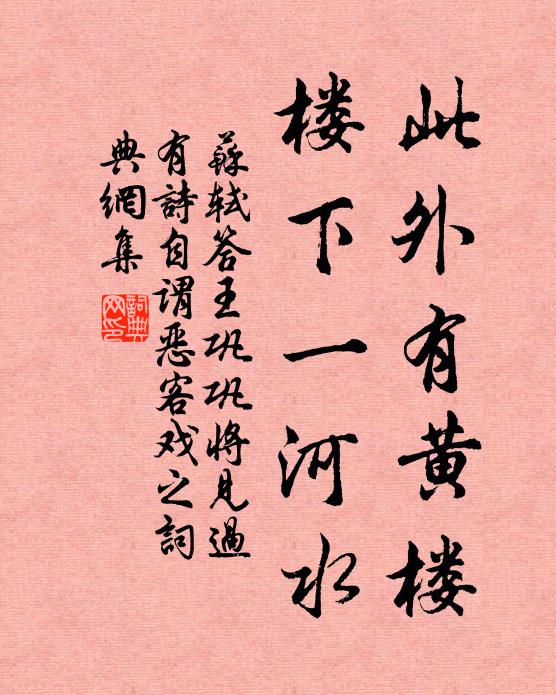 此外有黄楼
楼下一河水
蘇轼答王巩巩將見過
有詩自谓恶客戏之詞
典網集
詞典网印